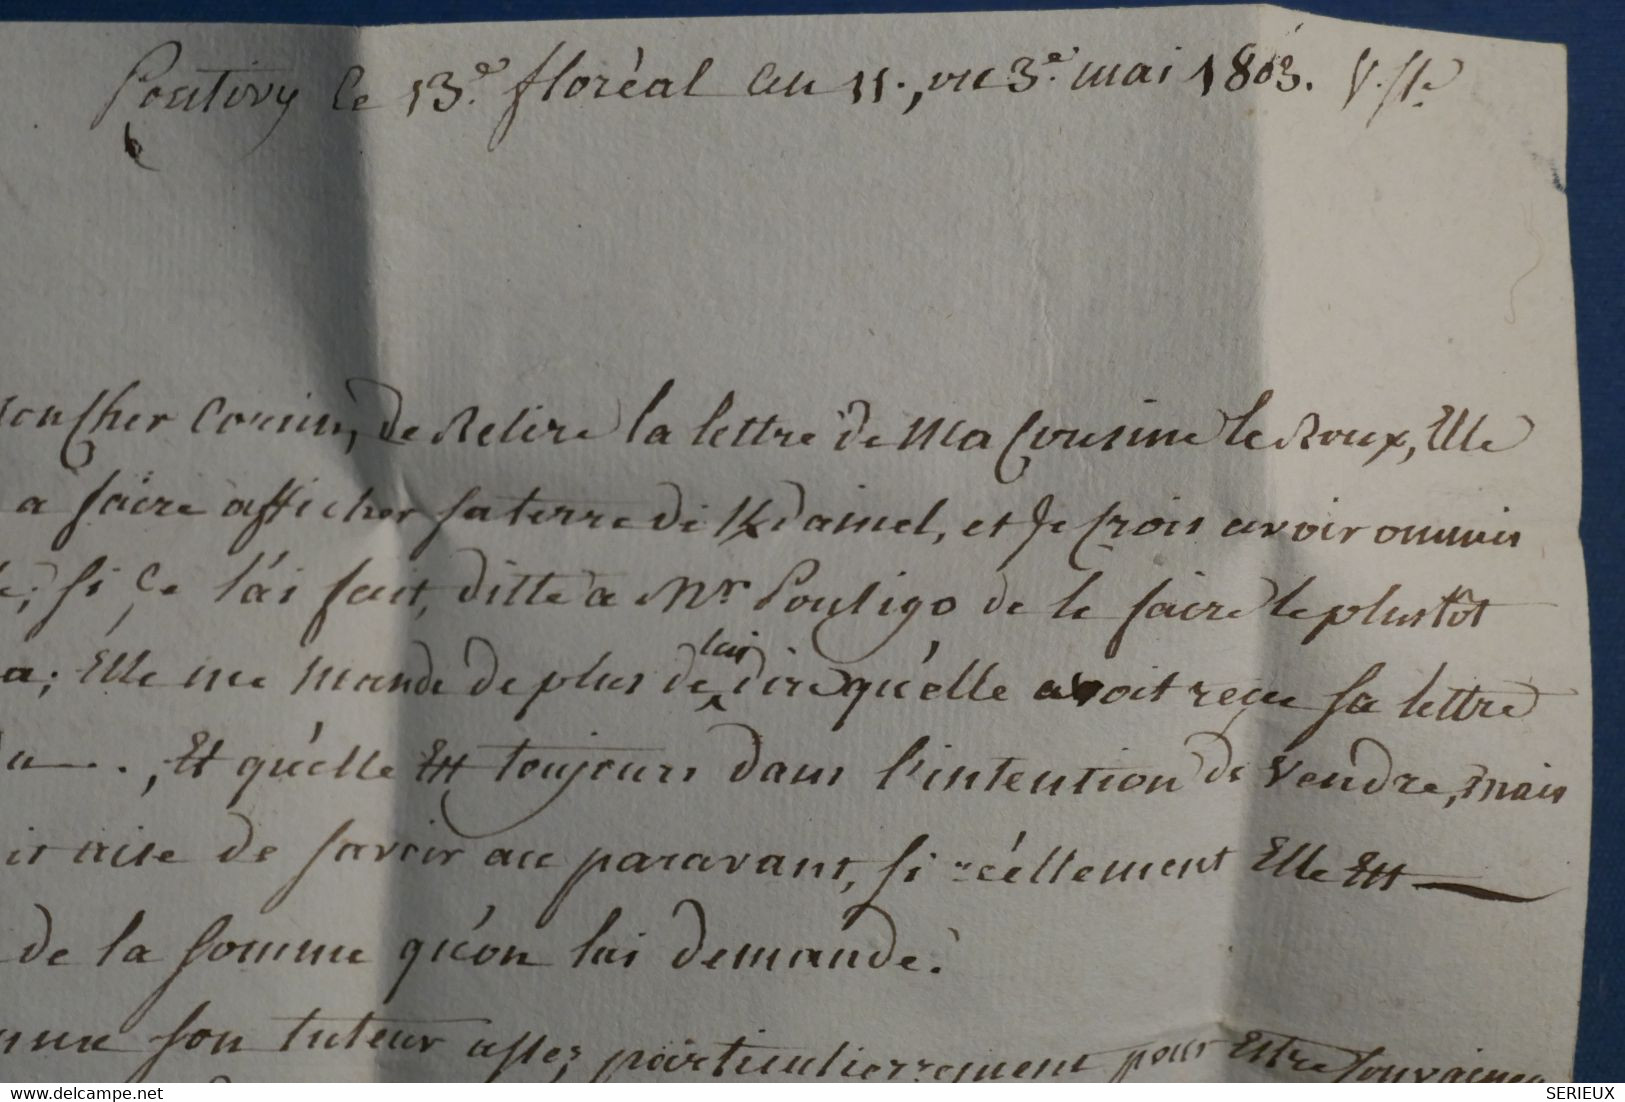 Pontivy le 13.e floréal an 11., ou 3.e mai 1803. V. St.
mon Cher Cousin, de Relire la lettre de Ma Cousine le Roux, Elle
a faire afficher sa terre de Kdaniel, et Je Crois avoir ommis
si Ce l'ai fait, ditte a Mr. Pouligo de le faire le plustôt
a; Elle me mande de plus de lui dire qu'elle avoit reçue sa lettre
du ., Et qu'elle Est toujours dans l'intention de vendre, mais
it aise de savoir au paravant, si réellement Elle Est
de la somme qu'on lui demande.
son tuteur assez particulierrement pour Estre
delcampe.net
SERIEUX